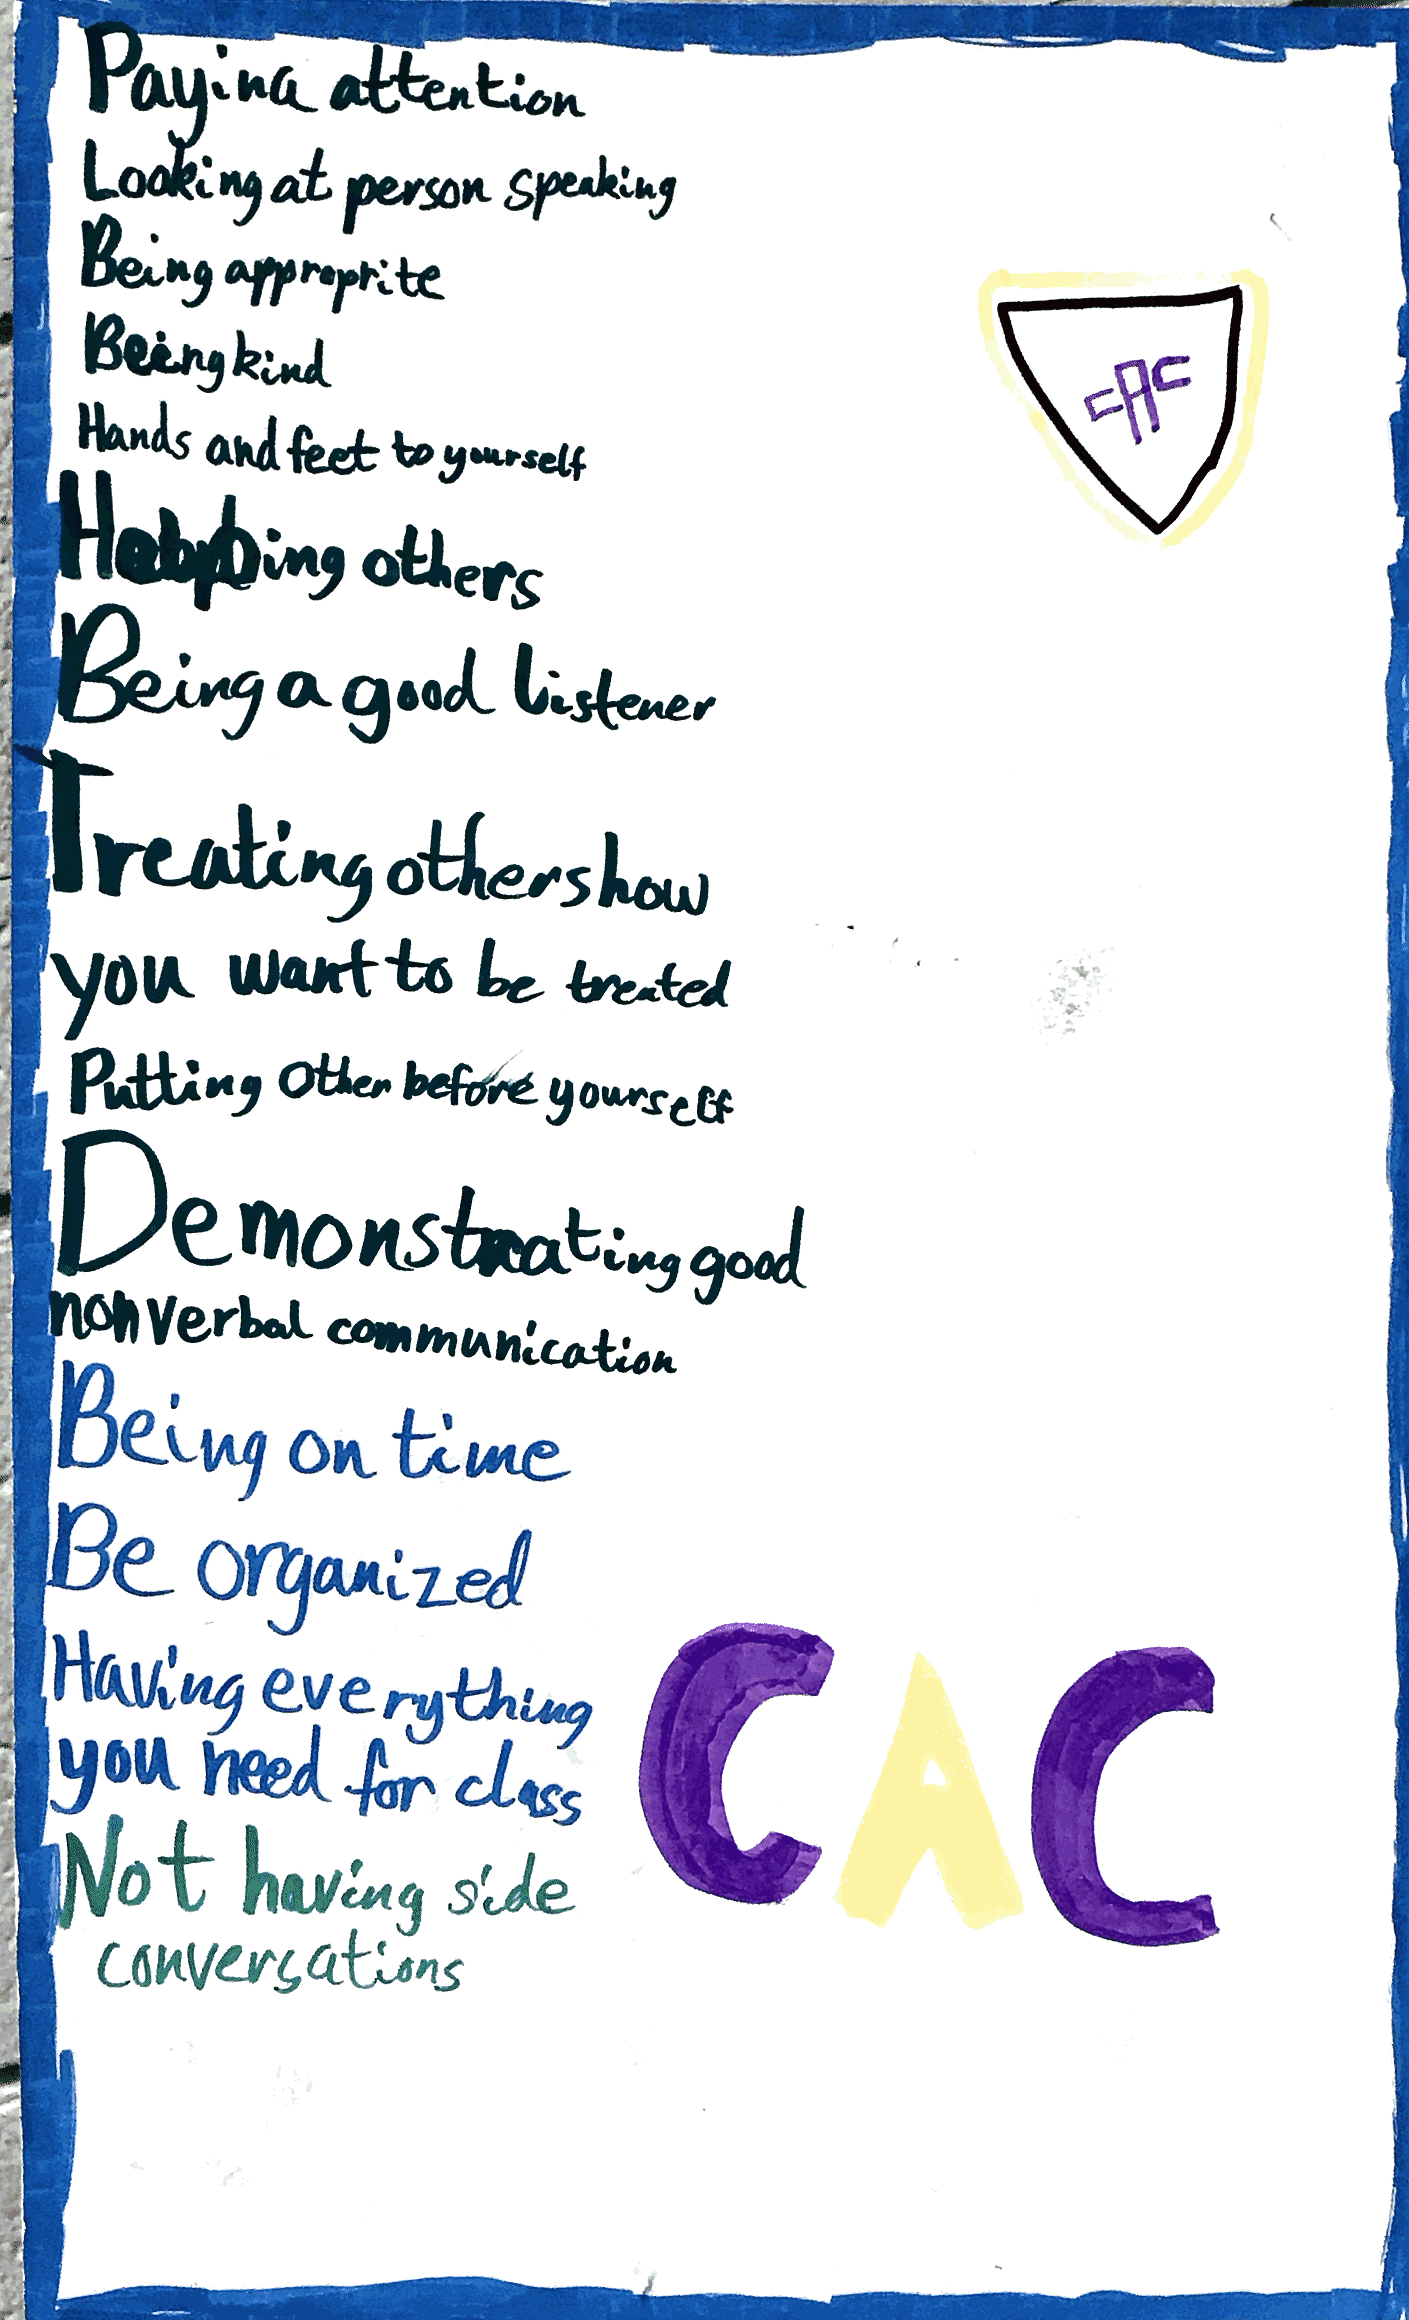 Paying attention
Looking at person speaking
Being approprite
Being kind
Hands and feet to yourself
CAC
Helping others
Being a good listener
Treating others how
you want to be treated
Putting Other before yourself
Demonstrating good
nonverbal communication
Being on time
Be organized
Having everything
you need for class
CAC
Not having side
conversations